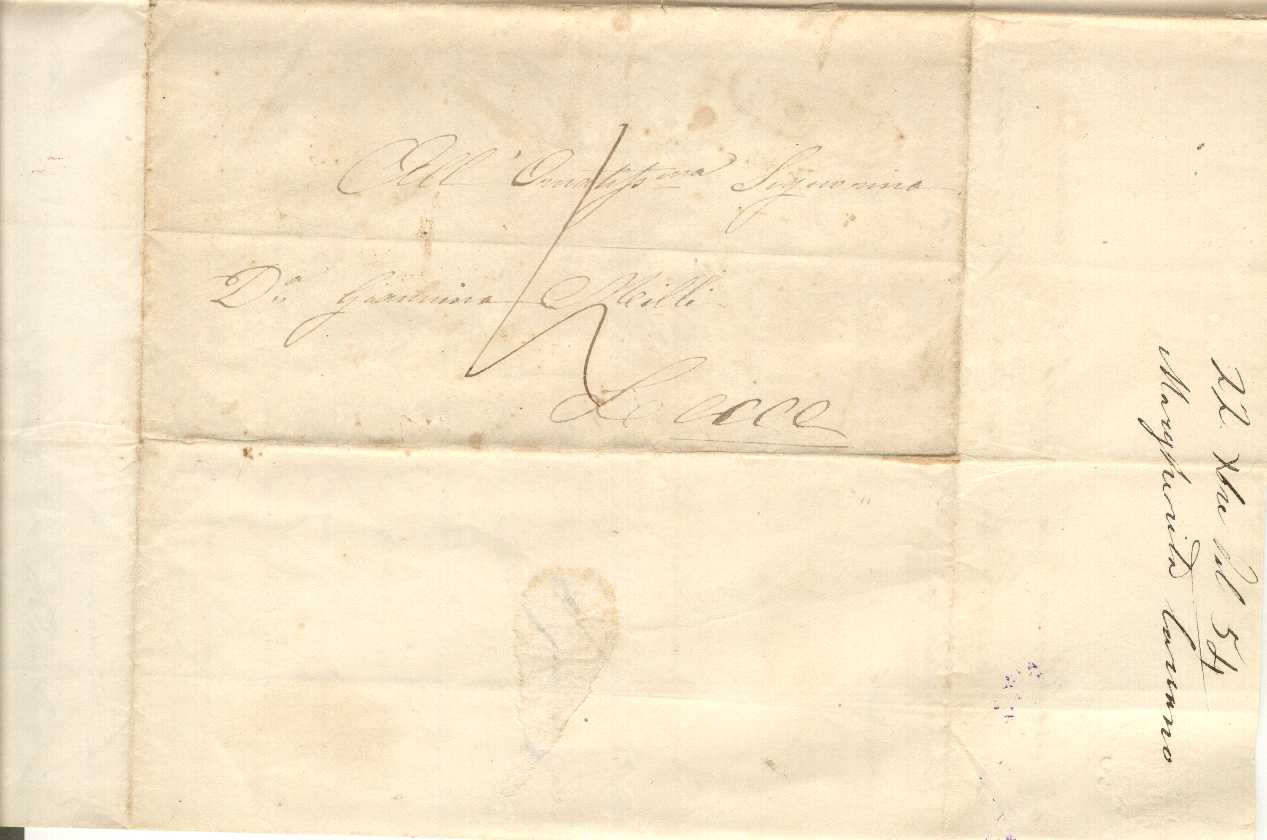 All' Ornatiss.ma Signorina
D.a Giannina Milli
Lecce
22 Xbre del 54
Margherita